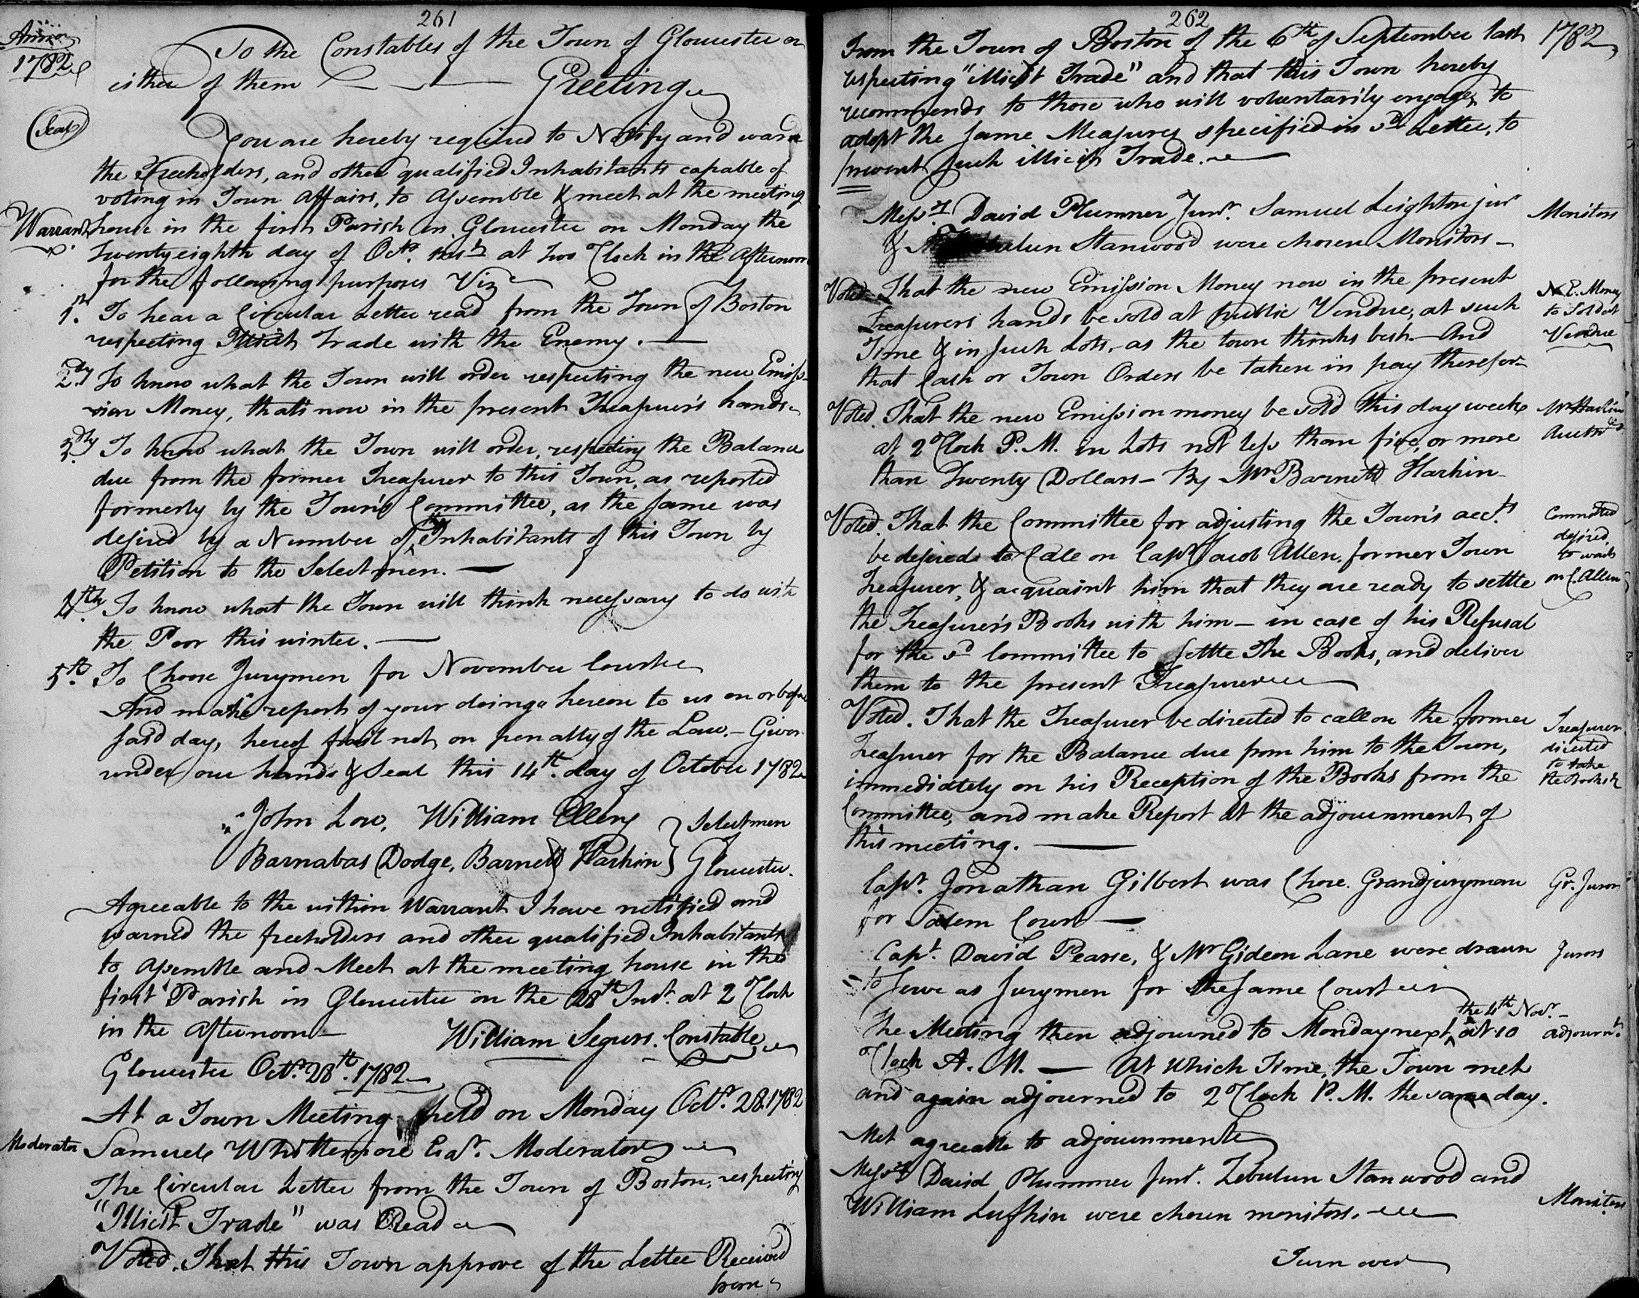 261
Anno
1782
To the Constables of the Town of Gloucester or
either of them Greeting
Seal
You are hereby required to Notify and warn
the Freeholders, and other qualified Inhabitants capable of
voting in Town Affairs, to Assemble & meet at the meeting
Warrant
house in the first Parish in Gloucester on Monday the
twenty eighth day of Octr. inst. at two Clock in the Afternoon
for the following purposes Viz
1st. To hear a Circular Letter read from the Town of Boston
respecting Illicit Trade with the Enemy.
2dly To know what the Town will order respecting the new Emiss-
sion Money, thats now in the present Treasurer's hands
3dly To know what the Town will order, respecting the Balance
due from the former Treasurer to this Town, as reported
formerly by the Town's Committee, as the same was
desired by a Number of the Inhabitants of this Town by
Petition to the Selectmen.
4thly To know what the Town will think necessary to do with
the Poor this winter.
5th. To Choose Jurymen for November Courts
And make report of your doings hereon to us on or before
said day, hereof fail not, on penalty of the Law. Given
under our hands & Seal this 14th. day of October 1782
John Low, William Ellery
Selectmen
Barnabas Dodge, Barnett Harkin
Gloucester.
Agreeable to the within Warrant I have notified and
warned the freeholders and other qualified Inhabitants
to Assemble and Meet at the meeting house in the
first Parish in Gloucester on the 28th Inst. at 2 Clock
in the afternoon
William Segurs. Constable
Gloucester Octr. 28th. 1782
At a Town Meeting held on Monday Octr. 28. 1782
Moderator
Samuel Whittemore Esqr. Moderator
The Circular Letter from the Town of Boston, respecting
"Illicit Trade" was Read
Voted. That this Town approve of the Letter Received
from
262
1782
from the Town of Boston of the 6th of September last
respecting "illicit Trade" and that this Town hereby
recommends to those who will voluntarily engage, to
adopt the same Measures specified in sd Letter, to
prevent such illicit Trade.
Messrs. David Plumner Junr. Samuel Leighton junr
Monitors
& Stanwood were chosen Monitors
Voted That the new Emission Money now in the present
N.E. Money
to Sold at
Vendue
Treasurers hands be sold at public Vendue, at such
Time & in such Lots, as the town thinks best. And
that Cash or Town Orders be taken in pay therefor
Voted. That the new Emission money be sold this day week
Mr Harkin
Auctr
at 2 Clock P. M. in Lots not less than five, or more
than Twenty Dollars - By Mr Barnett Harkin
Voted. That the Committee for adjusting the Town's acc.ts
Committee
desired
to wait
on C. Allen
be desired to Call on Capt Jacob Allen, former Town
Treasurer, & acquaint him that they are ready to settle
the Treasurer's Books with him - in case of his Refusal
for the sd Committee to settle The Books, and deliver
them to the present Treasurer
Voted. That the Treasurer be directed to call on the former
Treasurer
directed
to take
the Books &c
Treasurer for the Balance due from him to the Town,
immediately on his Reception of the Books from the
Committee, and make Report at the adjournment of
this meeting.
Capt. Jonathan Gilbert was Chose. Grandjuryman
Gr. Juror
for Salem Court
Capt. David Pearse, & Mr Gideon Lane were drawn
Jurors
to serve as Jurymen for the same Court
the 4th Novr.
The Meeting then adjourned to Monday next, at 10
adjournt.
Clock A. M. At which Time, the Town met
and again adjourned to 2 Clock P. M. the same day.
Met agreeable to adjournment
Messrs David Plummer junr. Zebulun Stanwood and
William Lufkin were chosen monitors.
Monitors
Turn over